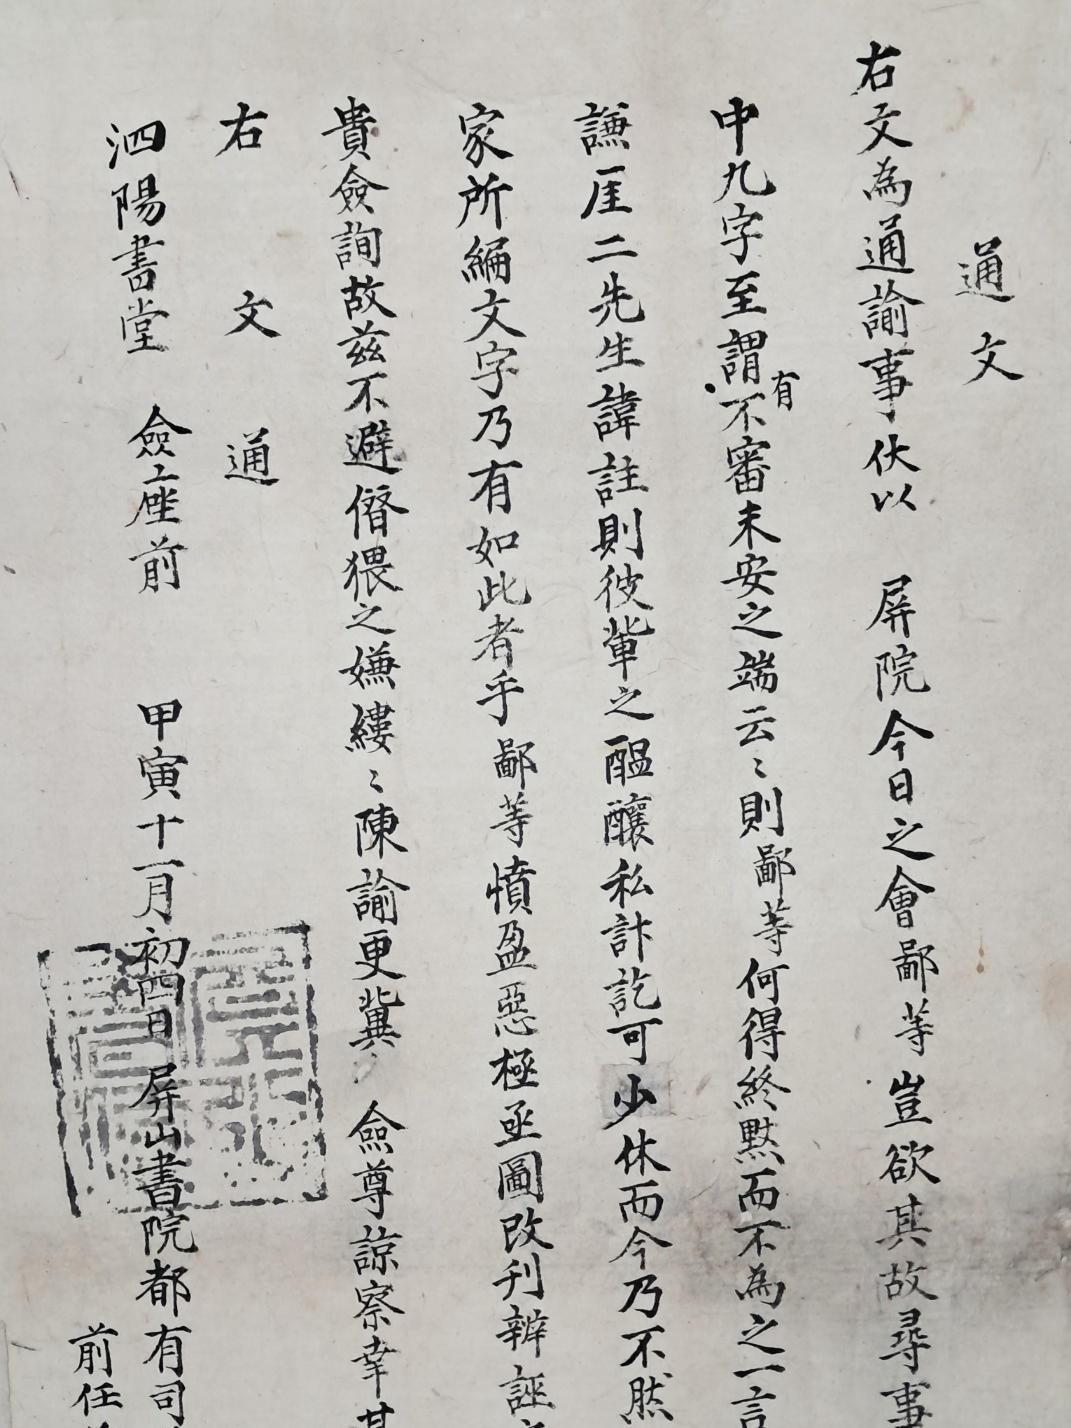 通文
右文為通諭事伏以 屛院今日之會鄙等豈欲其故尋事
申九字至謂有不審未安之端云〻則鄙等何得終黙而不為之一言
謙厓二先生諱註則彼輩之醞釀私計訖可少休而今乃不然
家所編文字乃有如此者乎鄙等憤盈惡極亟圖改刋辨誣
貴僉詢故玆不避僭猥之嫌縷〻陳諭更冀 僉尊諒察幸甚
右文通
泗陽書堂 僉座前 甲寅十一月初四日 屛山書院都有司
前任